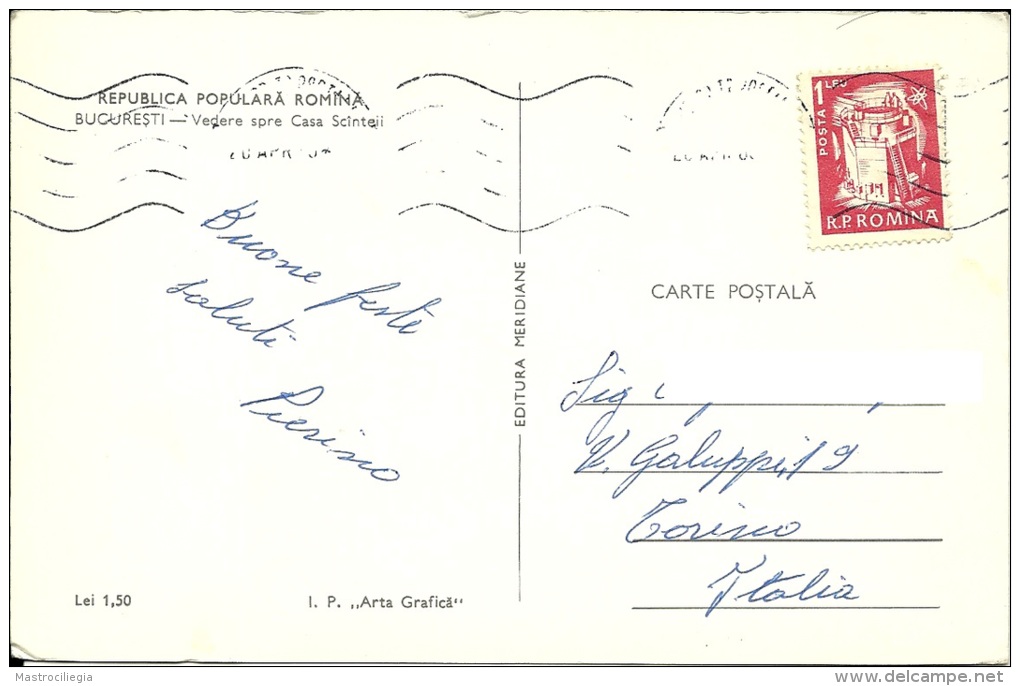 REPUBLICA POPULARĂ ROMÎNĂ
BUCUREȘTI — Vedere spre Casa Scînteii
Buone feste
saluti
Pierino
Lei 1,50
I. P. „Arta Grafică"
EDITURA MERIDIANE
1 LEU
POSTA
R.P. ROMINA
CARTE POȘTALĂ
Sig
V. Galuppi, 19
Torino
Italia
Mastrociliegia
delcampe.net